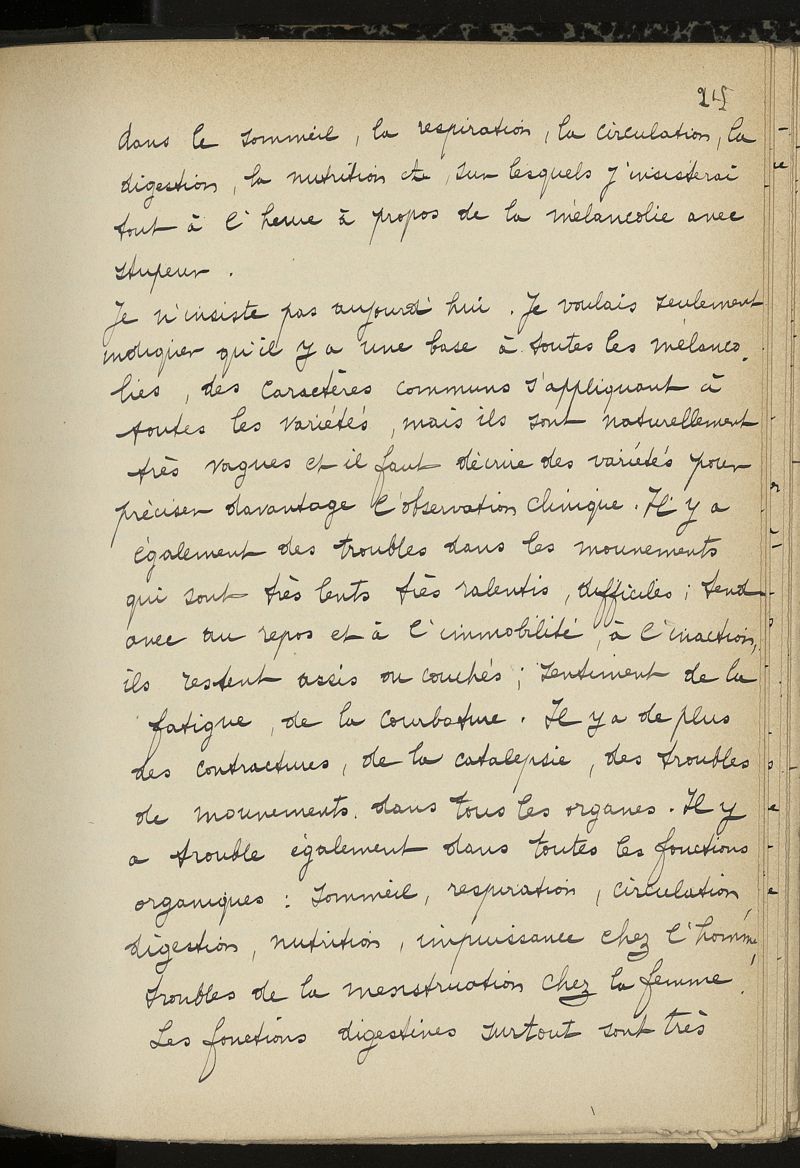 24
dans le sommeil, la respiration, la circulation, la
digestion, la nutrition etc, sur lesquels j'insisterai
tout à l'heure à propos de la mélancolie avec
stupeur.
Je n'insiste pas aujourd'hui. Je voulais seulement
indiquer qu'il y a une base à toutes les mélanco-
lies, des caractères communs s'appliquant à
toutes les variétés, mais ils sont naturellement
très vagues et il faut décrire des variétés pour
préciser davantage l'observation clinique. Il y a
également des troubles dans les mouvements
qui sont très lents très ralentis, difficiles; tend-
ance au repos et à l'immobilité, à l'inaction,
ils restent assis ou couchés; sentiment de la
fatigue, de la courbature. Il y a de plus
des contractures, de la catalepsie, des troubles
de mouvements dans tous les organes. Il y
a trouble également dans toutes les fonctions
organiques: sommeil, respiration, circulation,
digestion, nutrition, impuissance chez l'homme,
troubles de la menstruation chez la femme.
Les fonctions digestives surtout sont très